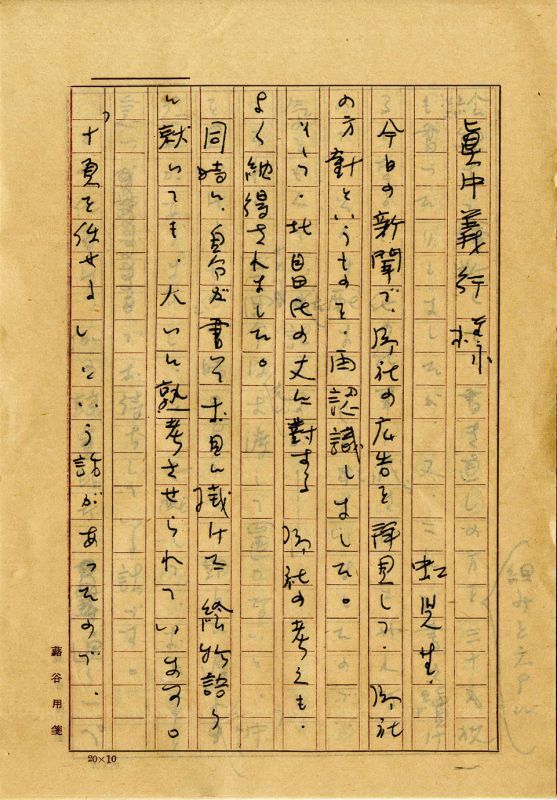 眞中義行様
虹児生
今日の新聞で、御社の広告を拝見して、御社
の方針というものを、再認識しました。
そして、北畠氏の文に對する 御社の考えも、
よく納得されました。
同時に、自分が書いて お目に掛けた 絵物語り
に就いても、大いに熟考させられています。
十頁を任せましという話があったので、
蕗谷用箋
20×10